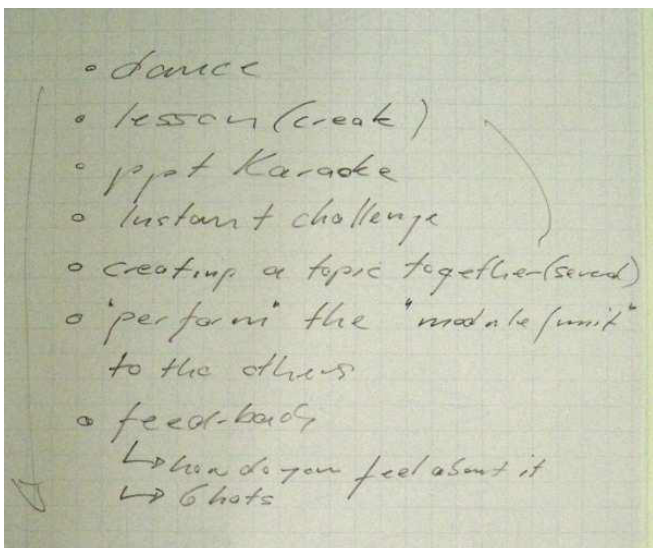 • dance
• lesson (create)
• ppt Karaoke
• Instant challenge
• creating a topic together
• "perform" the "module/unit"
to the others
• feed-back
↳ how do you feel about it
↳ 6 hats